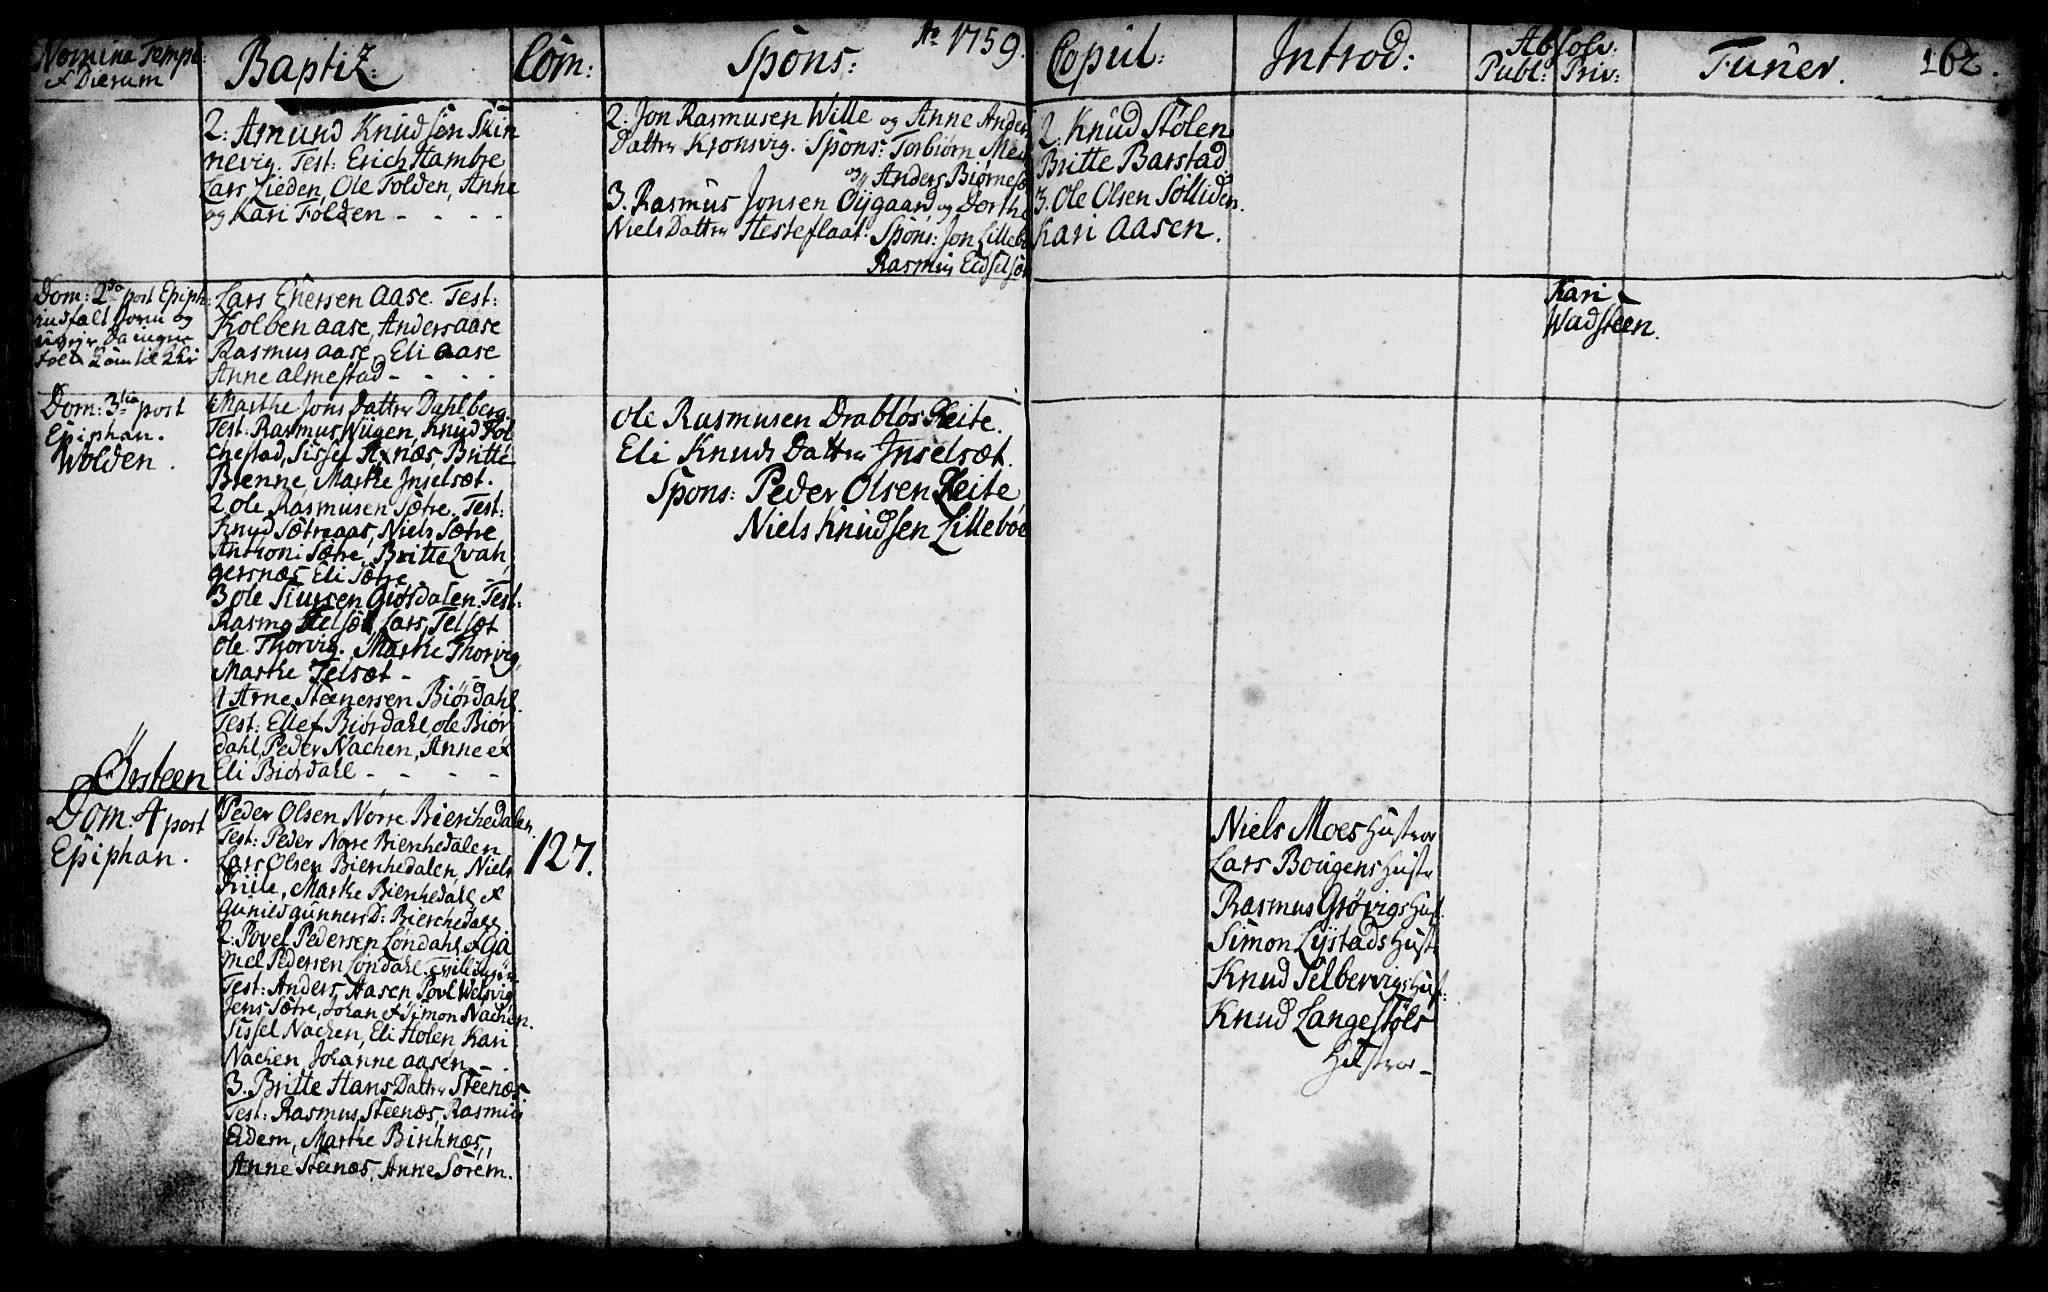 Nomina Temp:
et Dierum
Baptiz:
Com:
Spons:
Ao 1759.
Copul:
Introd:
Absolv:
Publ: Priv:
Funer.
162.
2: Amund Knudsen Skin
nevig. Test: Erich Hambre
Lars Lieden, Ole Folden, Anne
og Kari Folden - - - -
2: Jon Rasmusen Wille og Anne Anders
Datter Kronsvig. Spons: Torbiørn
og Anders Biørne
3. Rasmus Jonsen Øygaard og Dorthe
Niels Datter Hesteflaat. Spons: Jon Lillebø
Rasmus Eidselsæt
2. Knud Stølen
Britte Barstad
3. Ole Olsen Sølliden.
Kari Aasen.
Dom: 2da post Epiph:
indfalt Storm og
da ingen
Lars Enersen Aase. Test:
Kolben Aase, Anders Aase
Rasmus Aase, Eli Aase
Anne Almestad - - - -
Kari
Wadsteen.
Dom: 3tia post
Epiphan.
Wolden.
Marthe Jons Datter Dahlberg.
Test. Rasmus Nügen, Knud Fol
chestad, Sissel Axnæs, Britte
Brenne, Marthe Inselsæt.
2 Ole Rasmusen Sætre. Test:
Knud Sætreaas, Niels Sætre
Anthoni Sætre, Britte Qvan
gersnæs, Eli Sætre
3 Ole Siursen Giøsdalen. Test:
Rasmg Telsæt, Lars Telsæt
Ole Thorvig. Marthe Thorvig,
Marthe Telsæt -
1 Arne Steenersen Biørdahl.
Test: Ellef Biørdahl, Ole Biør
dahl, Peder Nachen, Anne et
Eli Biørdahl - - - -
Ørsteen
Ole Rasmusen Drabløs Reite.
Eli Knuds Datter Inselsæt.
Spons: Peder Olsen Reite
Niels Knudsen Lillebøe
Dom: 4 post
Epiphan.
Peder Olsen Nørre Bierchedalen.
Test: Peder Nørre Bierchedalen
Lars Olsen Bierchedalen, Niels
Friile, Marthe Bierchedahl et
Gunild Gunners D: Bierchedahl
2. Povel Pedersen Løndahl et Ga
mel Pedersen Løndahl. Tvillinger
Test: Anders Aasen, Povl Welsvig
Jens Sætre, Johan et Simon Nachen.
Sissel Nachen, Eli Holen, Kari
Nachen, Johanne Aasen - -
3. Britte Hans Datter Steenæs
Test: Rasmus Steenæs, Rasmus
Eidem, Marthe Birchnæs,
Anne Steenæs, Anne Sørem.
127.
Niels Moes Hustroe
Lars Bougens Hustr
Rasmus Grøvigs Hust.
Simon Lystads Hustr
Knud Selbervigs Hust:
Knud Langestøls
Hustroe -